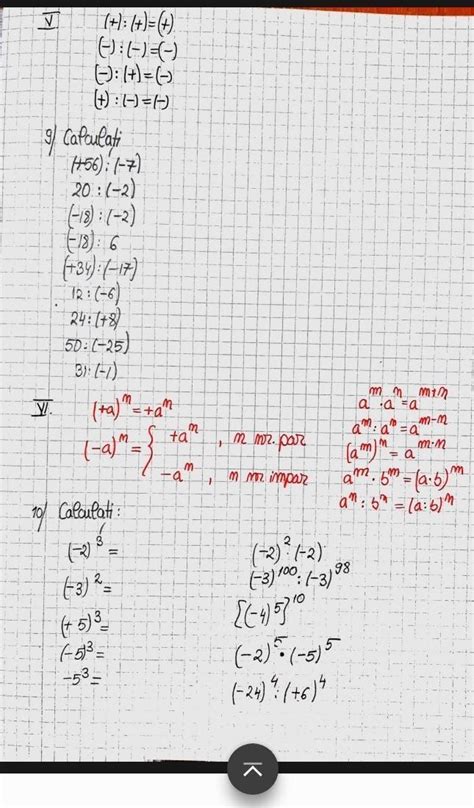 V (+):(+)=(+)
(-):(-)=(-)
(-):(+)=(-)
(+):(-)=(-)
9) Calculați
(+56):(-7)
20:(-2)
(-18):(-2)
(-18): 6
(+34):(-17)
12:(-6)
24:(+8)
50:(-25)
31:(-1)
VI. (+a)^n=+a^n
(-a)^n={ +a^n, n nr. par
-a^n, n nr impar
a^m·a^n=a^{m+n}
a^m:a^n=a^{m-n}
(a^m)^n=a^{m·n}
a^m·b^m=(a·b)^m
a^n:b^n=(a:b)^n
10) Calculați:
(-2)^3=
(-3)^2=
(+5)^3=
(-5)^3=
-5^3=
(-2)^2·(-2)
(-3)^100:(-3)^98
[(-4)^5]^10
(-2)^5·(-5)^5
(-24)^4:(+6)^4